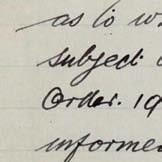 as to w
subject
Order. 19
informe